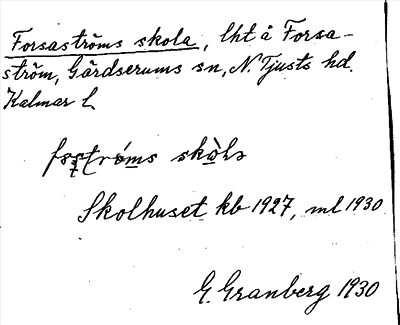 Forsaströms skola, lht å Forsa-
ström, Gärdserums sn, N. Tjusts hd.
Kalmar l.
Skolhuset kb 1927, ml 1930
G. Granberg 1930